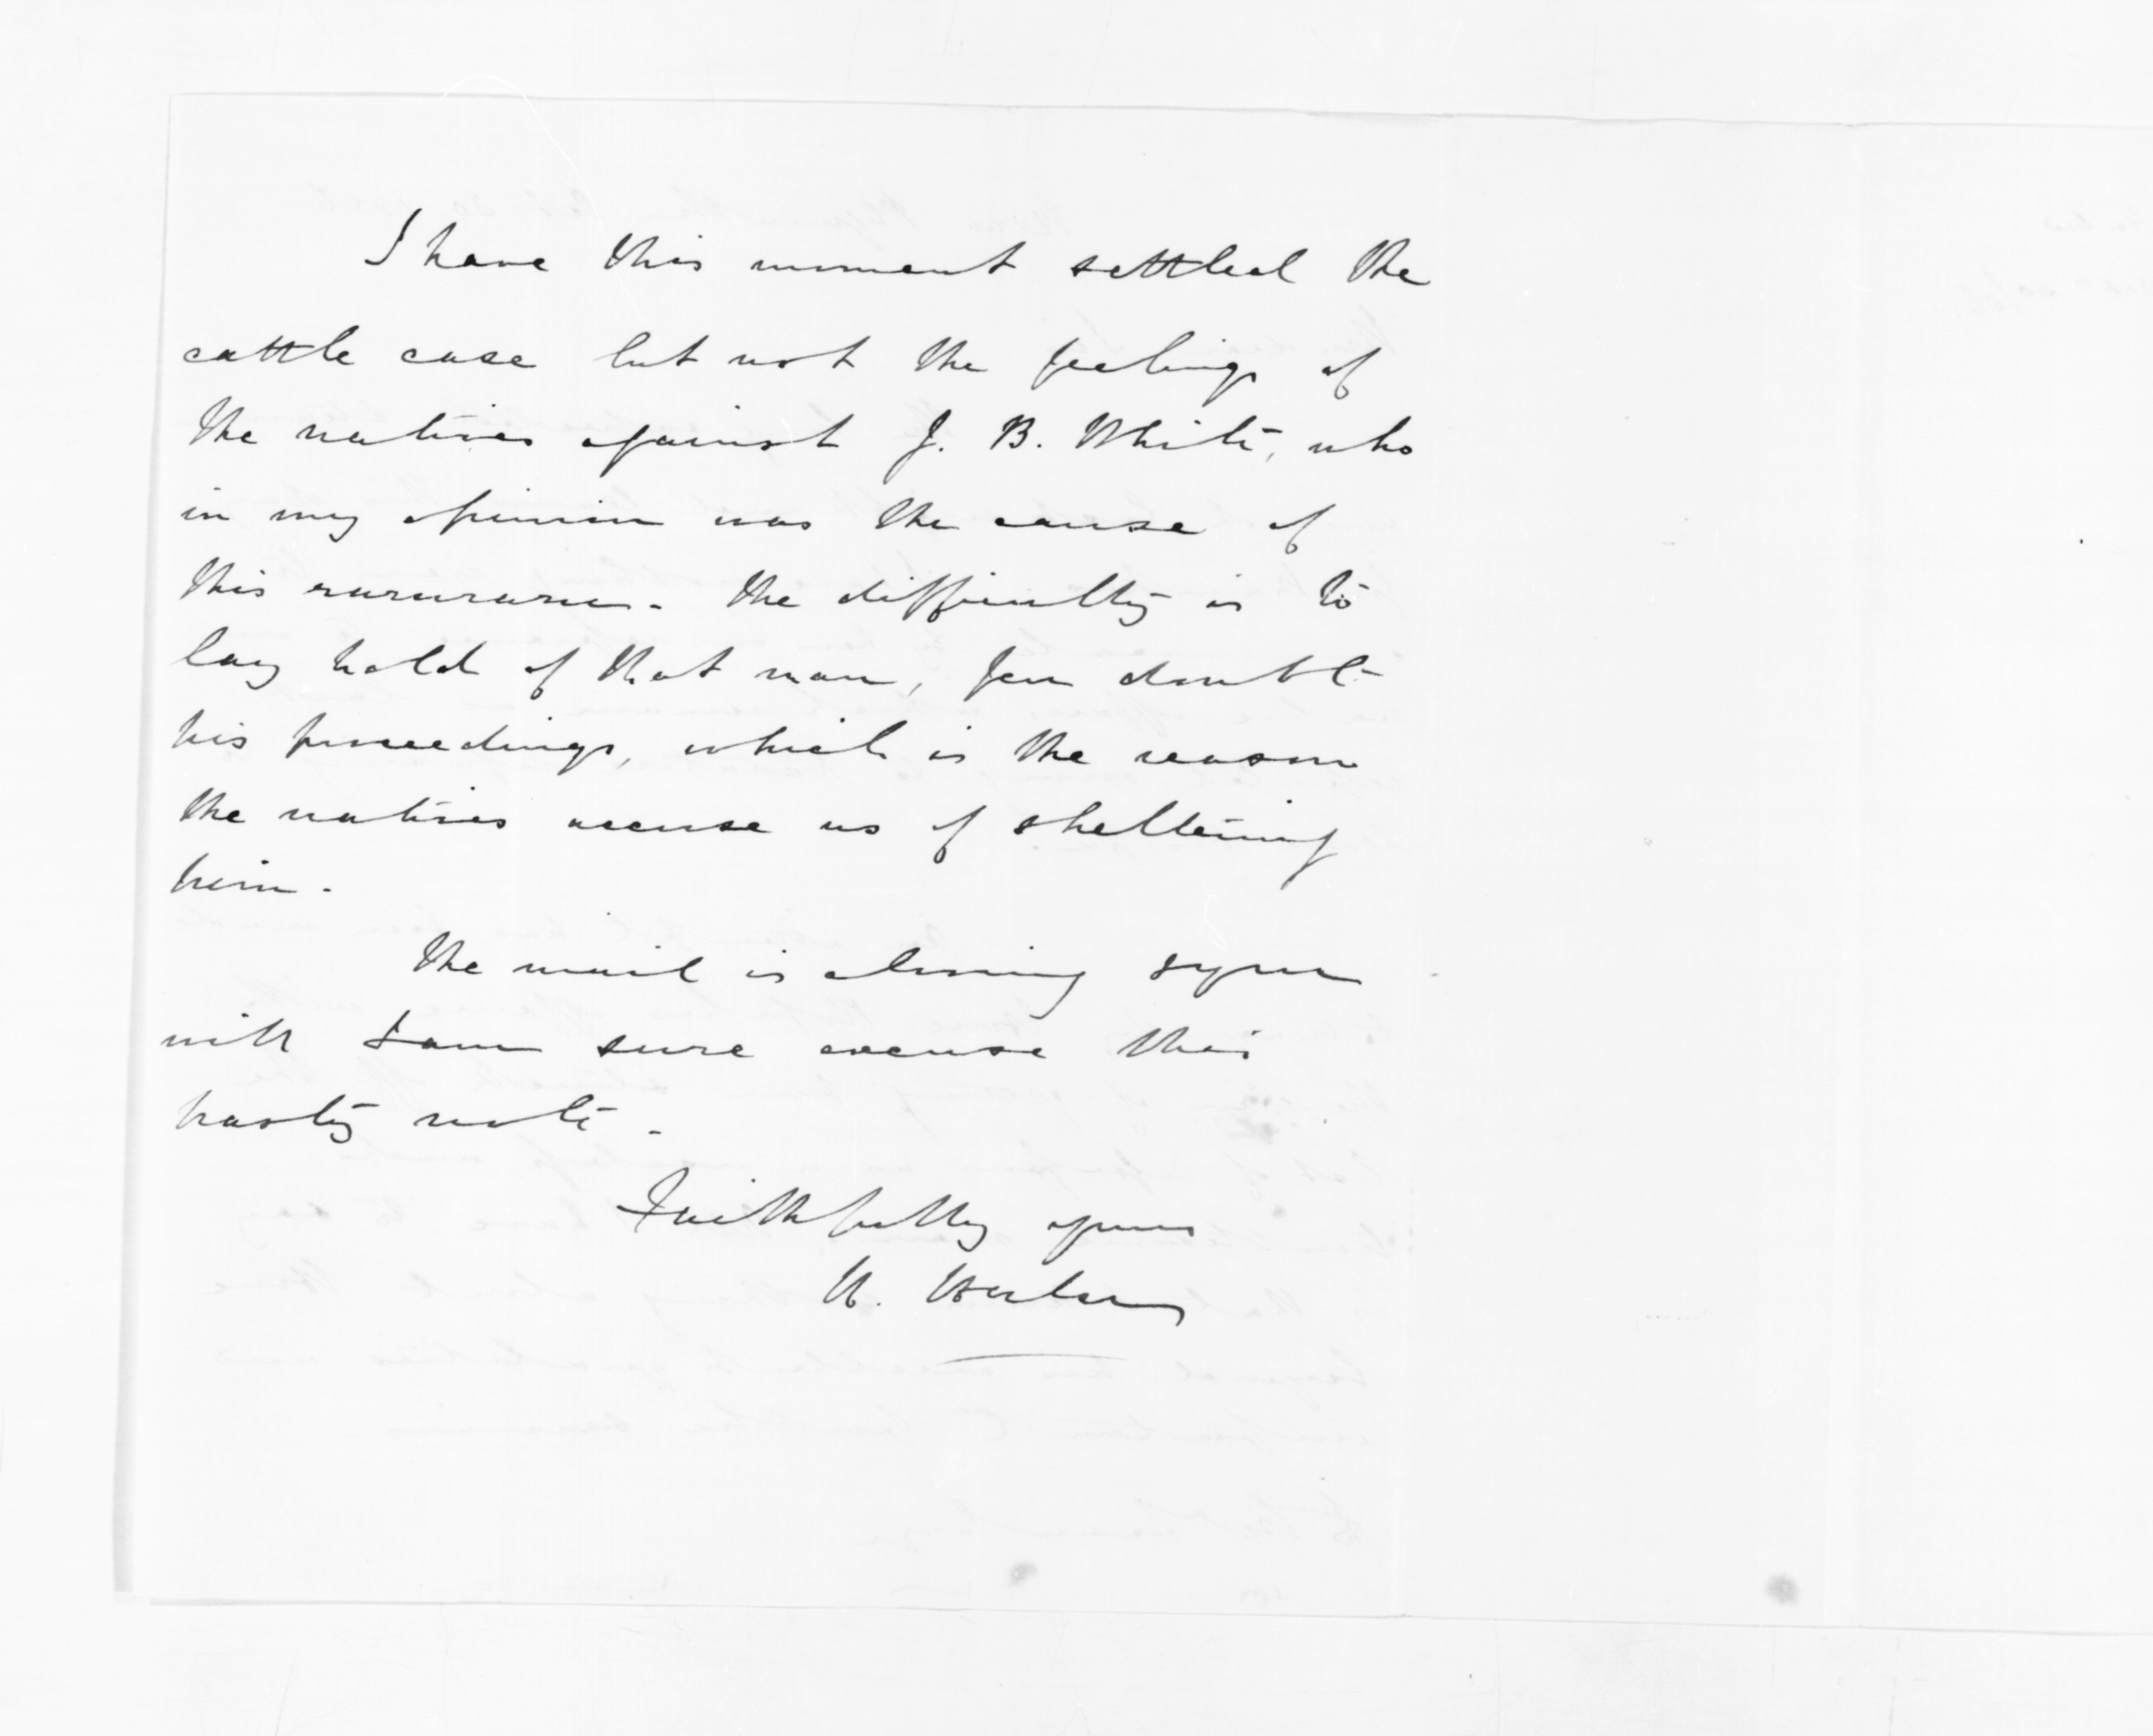 I have this moment settled the
cattle case but not the feelings of
the natives against J. B. White, who
in my opinion was the cause of
this raruraru. The difficulty is to
lay hold of that man, few doubt
his proceedings, which is the reason
the natives accuse us of sheltering
him.
The mail is closing & you
will I am sure excuse this
hasty note.
Faithfully yours
W. Halse